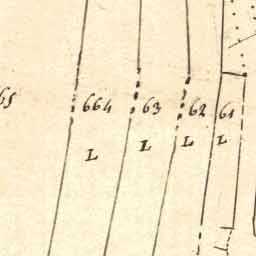 65 664 63 62 61
L L L L